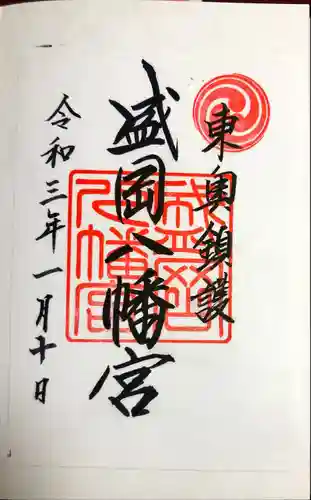 東奥鎮護
盛岡八幡宮
令和三年一月十日
盛岡八幡宮